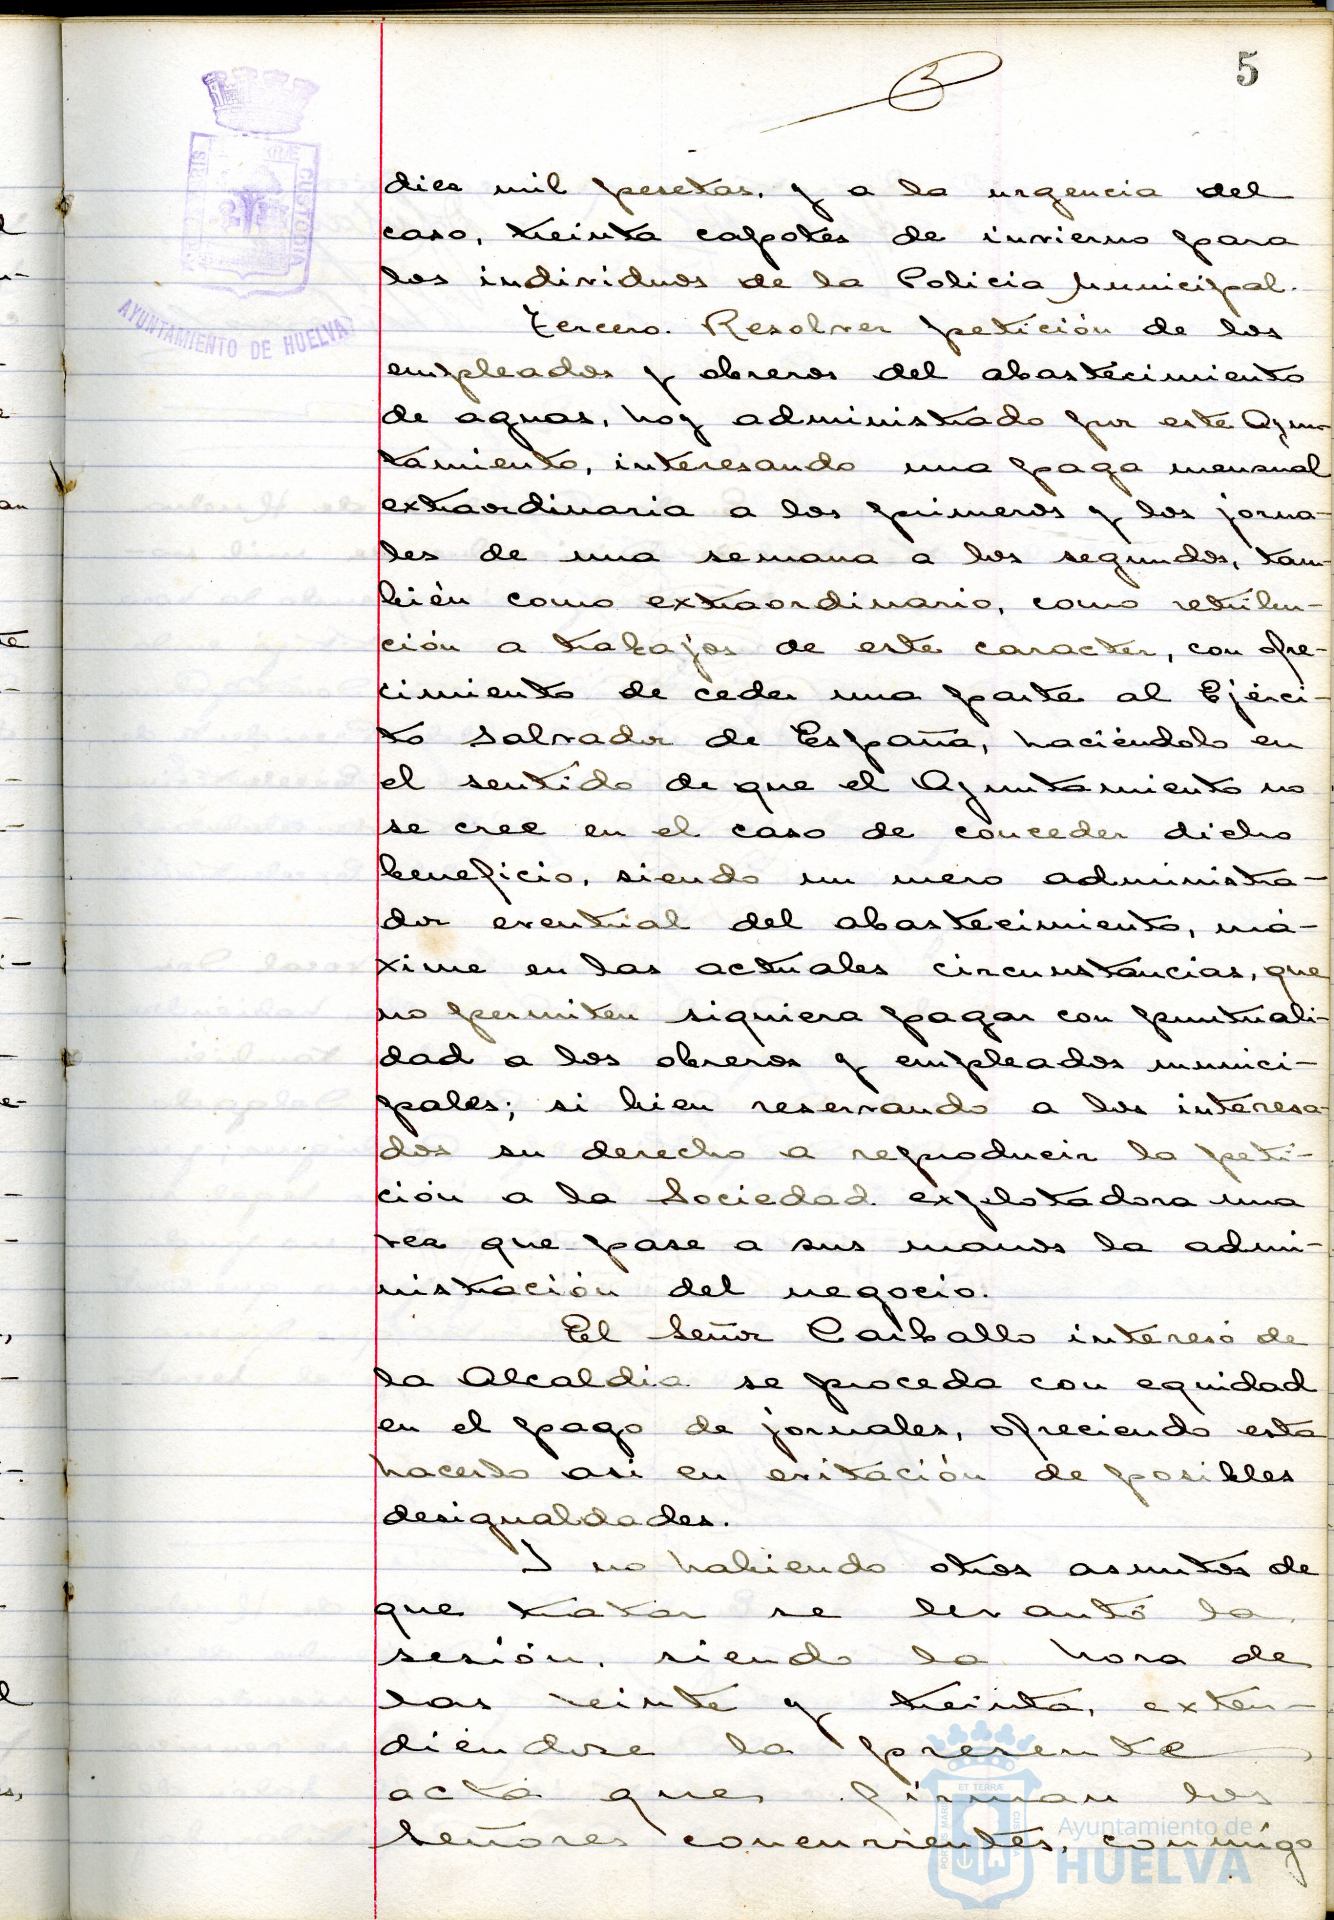 5
diez mil pesetas, y a la urgencia del
caso, treinta capotes de invierno para
los individuos de la Policia Municipal.
Tercero. Resolver petición de los
empleados y obreros del abastecimiento
de aguas, hoy administrado por este Ayun
tamiento, interesando una paga mensual
extraordinaria a los primeros y los jorna-
les de una semana a los segundos, tam-
bién como extraordinario, como retribu-
ción a trabajos de este caracter, con ofre-
cimiento de ceder una parte al Ejérci-
to Salvador de España, haciéndolo en
el sentido de que el Ayuntamiento no
se cree en el caso de conceder dicho
beneficio, siendo un mero administra-
dor eventual del abastecimiento, má-
xime en las actuales circunstancias, que
no permiten siquiera pagar con puntuali-
dad a los obreros y empleados munici-
pales; si bien reservando a los interesa-
dos su derecho a reproducir la peti-
ción a la Sociedad explotadora una
vez que pase a sus manos la admi-
nistración del negocio.
El Señor Carballo interesó de
la Alcaldia se proceda con equidad
en el pago de jornales, ofreciendo esta
hacerlo asi en evitación de posibles
desigualdades.
Y no habiendo otros asuntos de
que tratar se levantó la
sesión, siendo la hora de
las veinte y treinta, exten-
diéndose la presente
acta que firman los
Señores concurrentes, conmigo
CUSTODIA
AYUNTAMIENTO DE HUELVA
PORTUS MARIS ET TERRÆ CUSTODIA
Ayuntamiento de
HUELVA